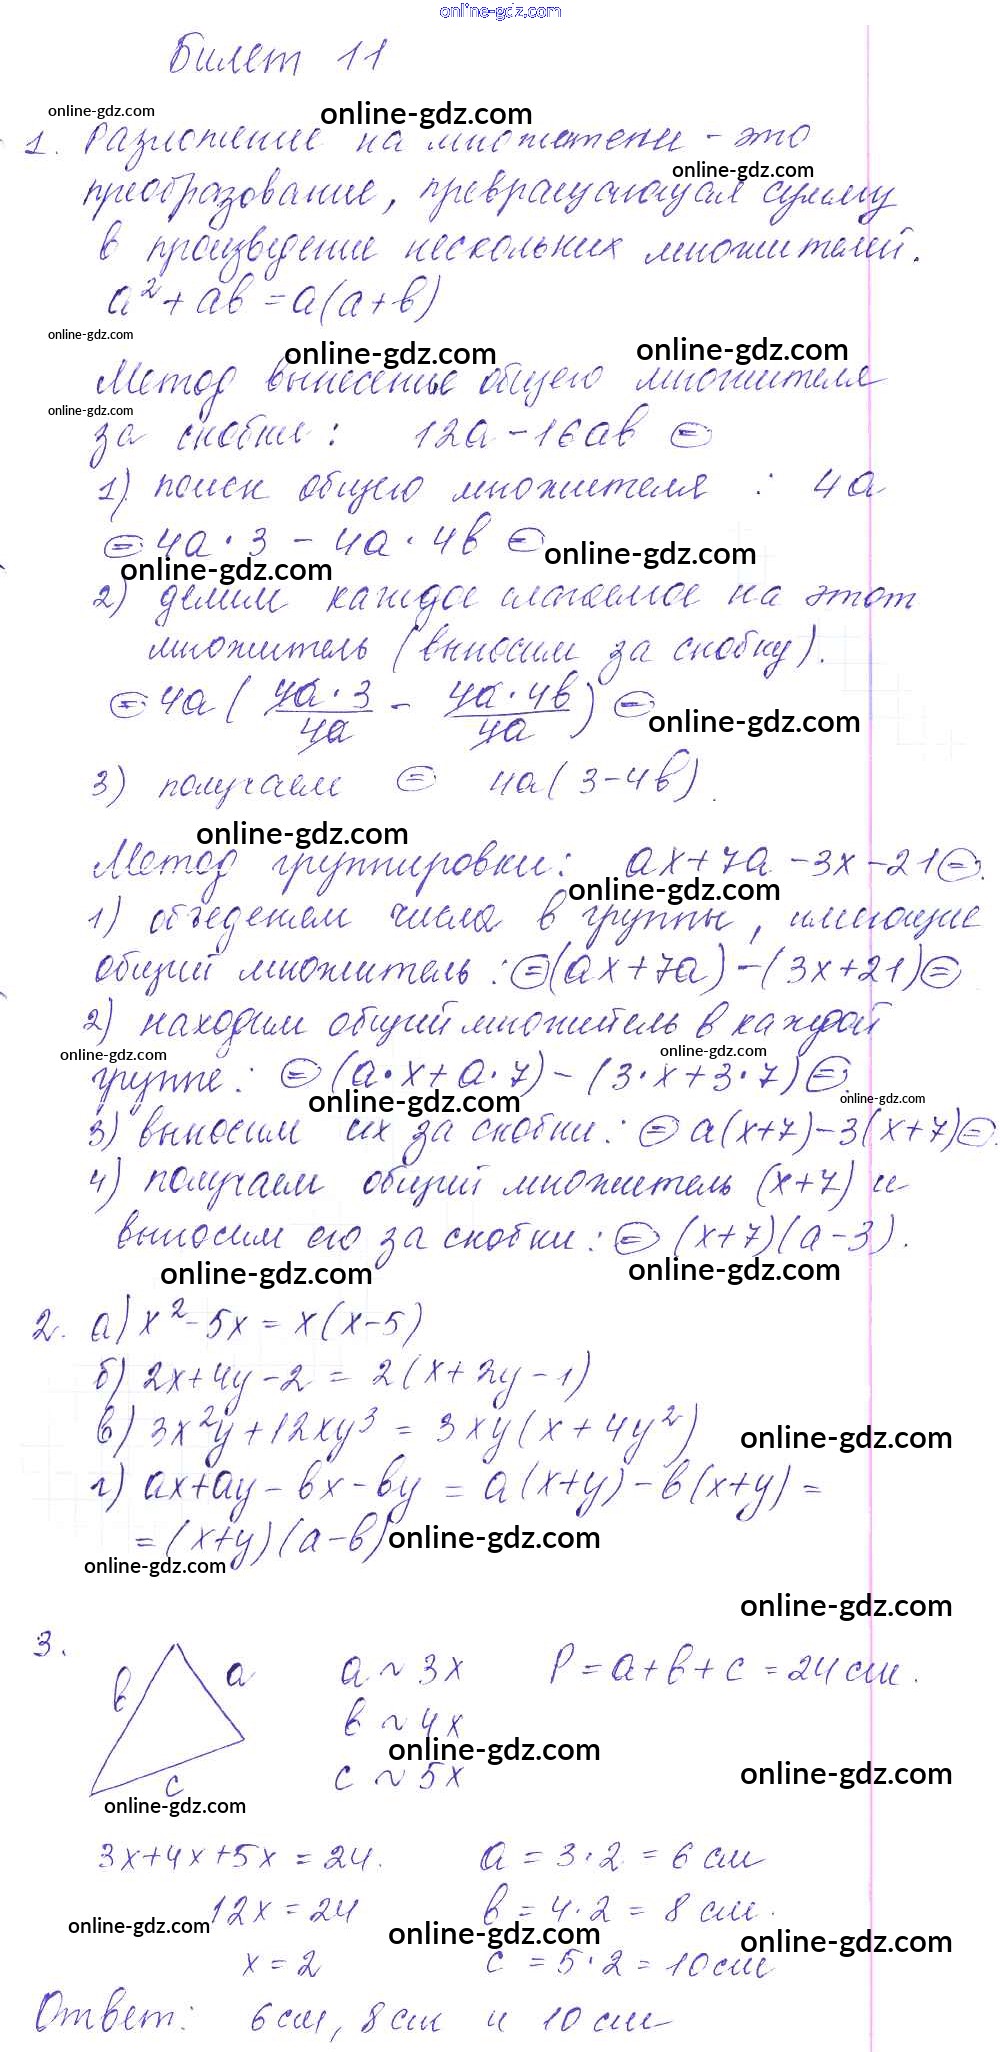 online-gdz.com
Билет 11
online-gdz.com online-gdz.com
1. Разложение на множители - это
online-gdz.com
преобразование, превращающая сумму
в произведение нескольких множителей.
a² + ab = a(a+b)
online-gdz.com
online-gdz.com online-gdz.com
Метод вынесенье общего множителя
online-gdz.com
за скобки : 12a - 16ab =
1) поиск общего множителя : 4a
= 4a · 3 - 4a · 4b =
online-gdz.com
online-gdz.com
2) делим каждое слагаемое на этот
множитель (выносим за скобку).
= 4a ( 4a · 3 / 4a - 4a · 4b / 4a ) =
online-gdz.com
3) получаем = 4a(3-4b).
online-gdz.com
Метод группировки: ax+7a-3x-21 =
online-gdz.com
1) объеденяем числа в группы, имеющие
общий множитель: = (ax+7a)-(3x+21) =
2) находим общий множитель в каждой
online-gdz.com online-gdz.com
группе: = (a·x+a·7)-(3·x+3·7) =
online-gdz.com
online-gdz.com
3) выносим их за скобки: = a(x+7)-3(x+7) =
4) получаем общий множитель (x+7) и
выносим его за скобки: = (x+7)(a-3).
online-gdz.com online-gdz.com
2. а) x²-5x = x(x-5)
б) 2x+4y-2 = 2(x+2y-1)
в) 3x²y+12xy³ = 3xy(x+4y²)
online-gdz.com
г) ax+ay-bx-by = a(x+y)-b(x+y) =
= (x+y)(a-b)
online-gdz.com
online-gdz.com
online-gdz.com
3.
b a a ~ 3x P = a+b+c = 24 см.
b ~ 4x
online-gdz.com
c c ~ 5x
online-gdz.com
online-gdz.com
3x+4x+5x = 24. a = 3·2 = 6 см
12x = 24 b = 4·2 = 8 см.
online-gdz.com online-gdz.com online-gdz.com
x = 2 c = 5·2 = 10 см
Ответ: 6 см, 8 см и 10 см